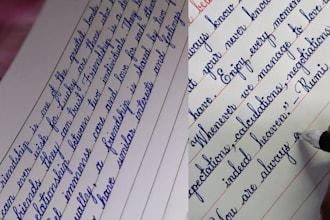 friendship is one of the greatest bonds
ever wish for. Lucky are those who
friends they can trust. Friendship is a
relationship between two individuals. They
immense care and love for each other.
a friendship is shared by two
have similar interests and feelings
always know
our never know
Enjoy every momen
have
"Whenever we manage to love
expectations, calculations, negotiations
indeed heaven." Rumi
are always